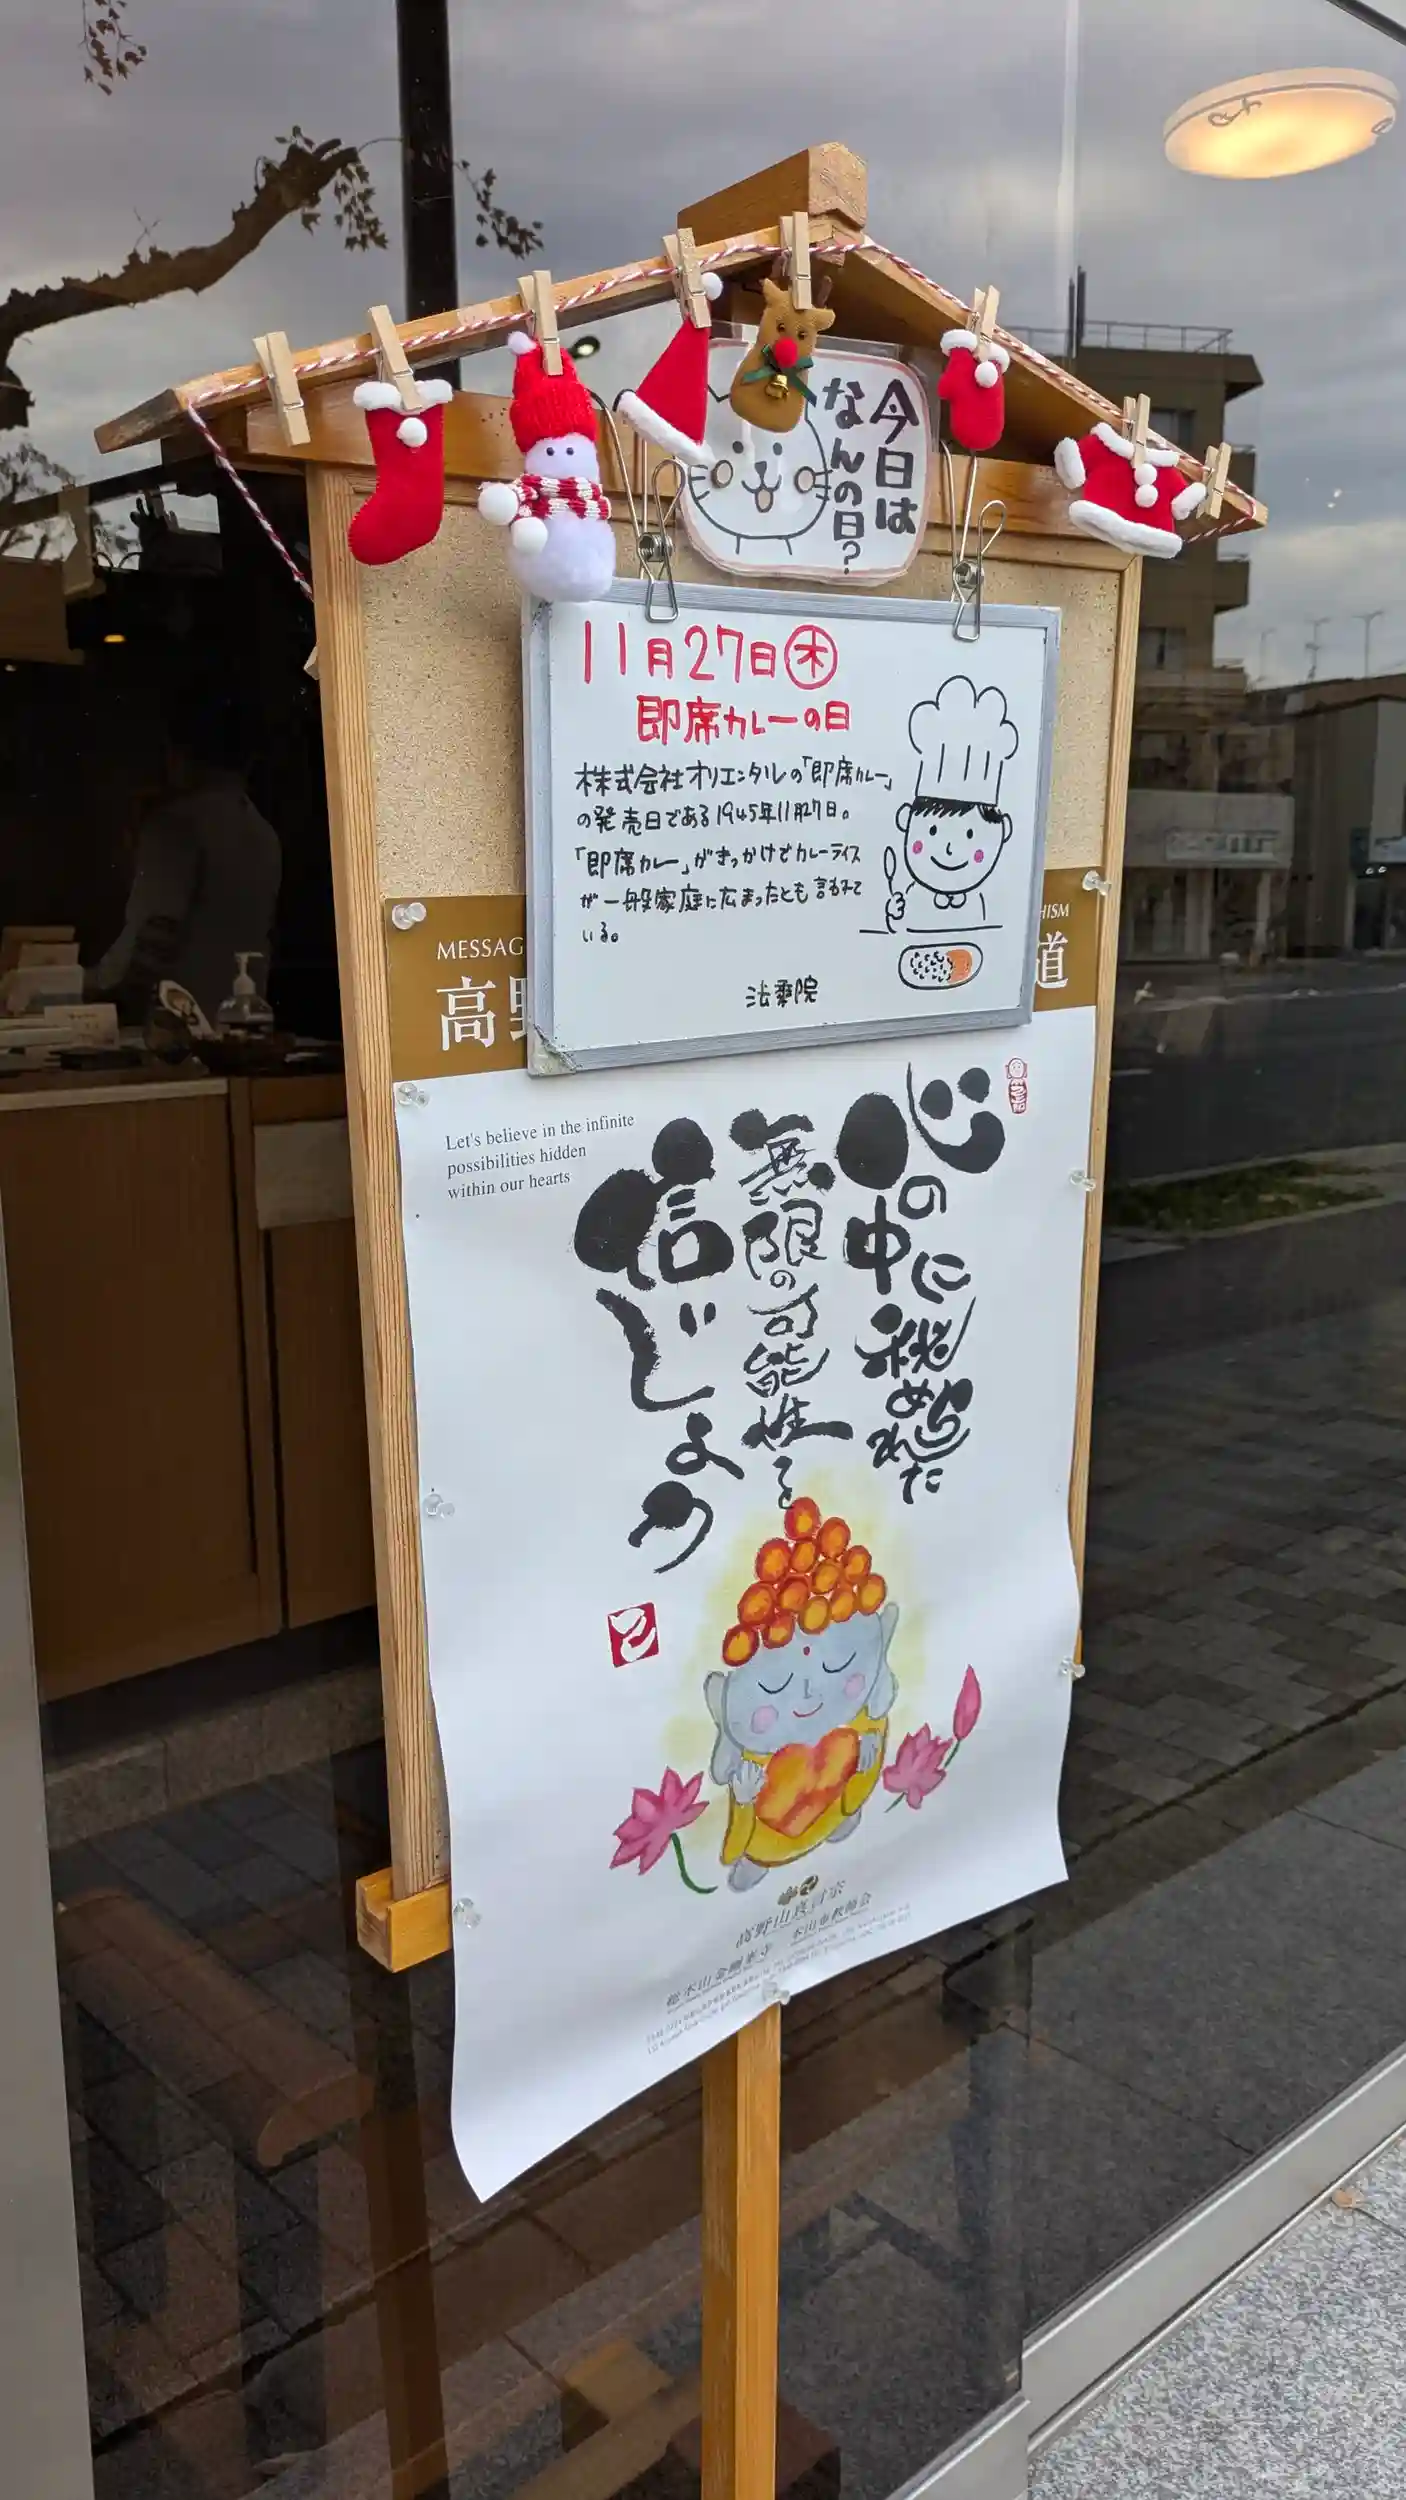 今日は
なんの日?
11月27日㊍
即席カレーの日
株式会社オリエンタルの「即席カレー」
の発売日である1945年11月27日。
「即席カレー」がきっかけでカレーライス
が一般家庭に広まったとも言われて
いる。
法乗院
MESSAG
HISM
高野
道
Let's believe in the infinite
possibilities hidden
within our hearts
心の中に秘められた
無限の可能性を
信じよう
高野山真言宗
総本山金剛峯寺 本山布教師会